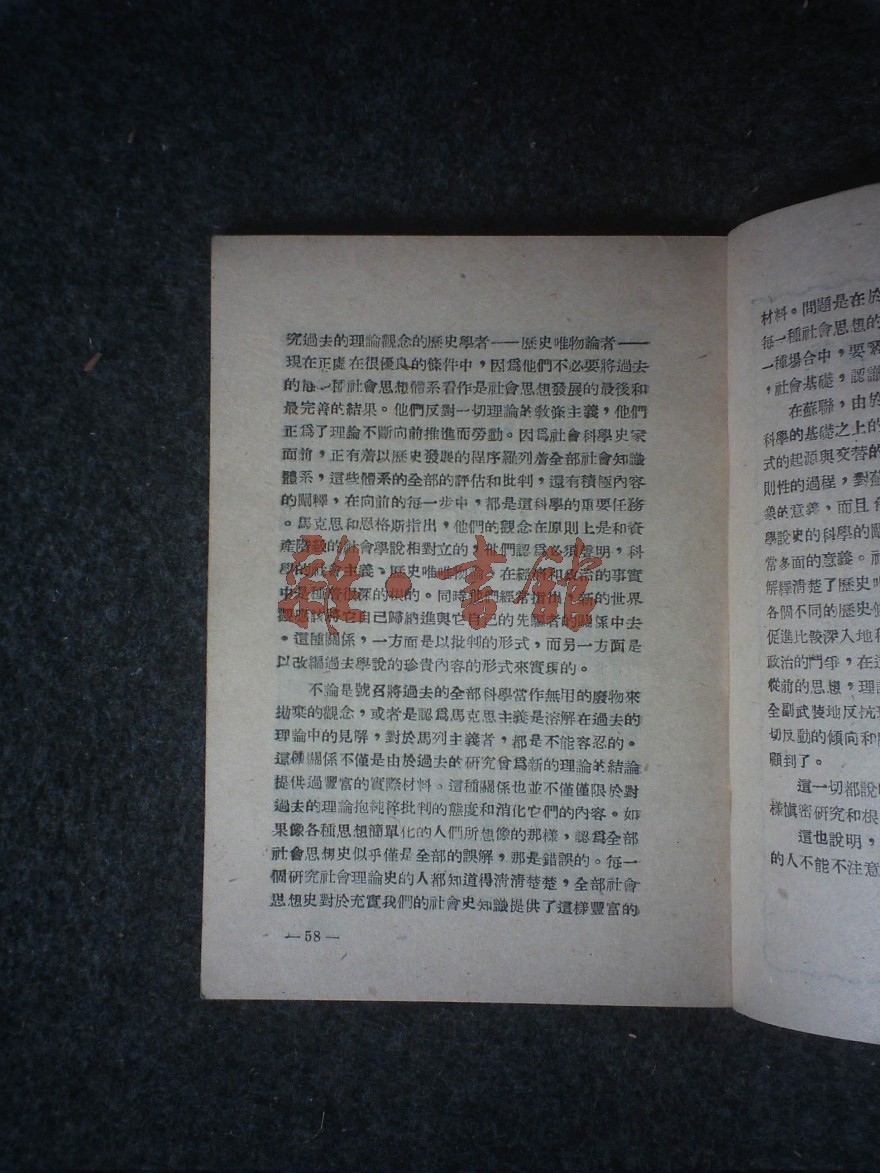 究過去的理論觀念的歷史學者——歷史唯物論者——
現在正處在很優良的條件中，因爲他們不必要將過去
的每一種社會思想體系看作是社會思想發展的最後和
最完善的結果。他們反對一切理論的敎條主義，他們
正爲了理論不斷向前推進而勞動。因爲社會科學史家
面前，正有着以歷史發展的程序羅列着全部社會知識
體系，這些體系的全部的評估和批判，還有積極內容
的闡釋，在向前的每一步中，都是這科學的重要任務
。馬克思和恩格斯指出，他們的觀念在原則上是和資
產階級的社會學說相對立的，他們認爲必須聲明，科
學的社會主義、歷史唯物論，在經濟和政治的事實
中是種着很深的根的。同時他們經常指出，新的世界
觀應該將它自己歸納進與它自己的先驅者的關係中去
。這種關係，一方面是以批判的形式，而另一方面是
以改編過去學說的珍貴內容的形式來實現的。
不論是號召將過去的全部科學當作無用的廢物來
拋棄的觀念，或者是認爲馬克思主義是溶解在過去的
理論中的見解，對於馬列主義者，都是不能容忍的。
這種關係不僅是由於過去的研究曾爲新的理論的結論
提供過豐富的實際材料。這種關係也並不僅僅限於對
過去的理論抱純粹批判的態度和消化它們的內容。如
果像各種思想簡單化的人們所想像的那樣，認爲全部
社會思想史似乎僅是全部的誤解，那是錯誤的。每一
個研究社會理論史的人都知道得清清楚楚，全部社會
思想史對於充實我們的社會史知識提供了這樣豐富的
— 58 —
材料。問題是在於
每一種社會思想的
一種場合中，要
，社會基礎，認識
在蘇聯，由於
科學的基礎之上的
式的起源與交替的
則性的過程，對
象的意義，而且
學說史的科學的
常多面的意義。
解釋清楚了歷史唯
各個不同的歷史
促進比較深入地和
政治的鬥爭，在這
從前的思想，理
全副武裝地反抗
切反動的傾向和
顧到了。
這一切都說
樣愼密研究和根
這也說明，
的人不能不注意
雜·書館